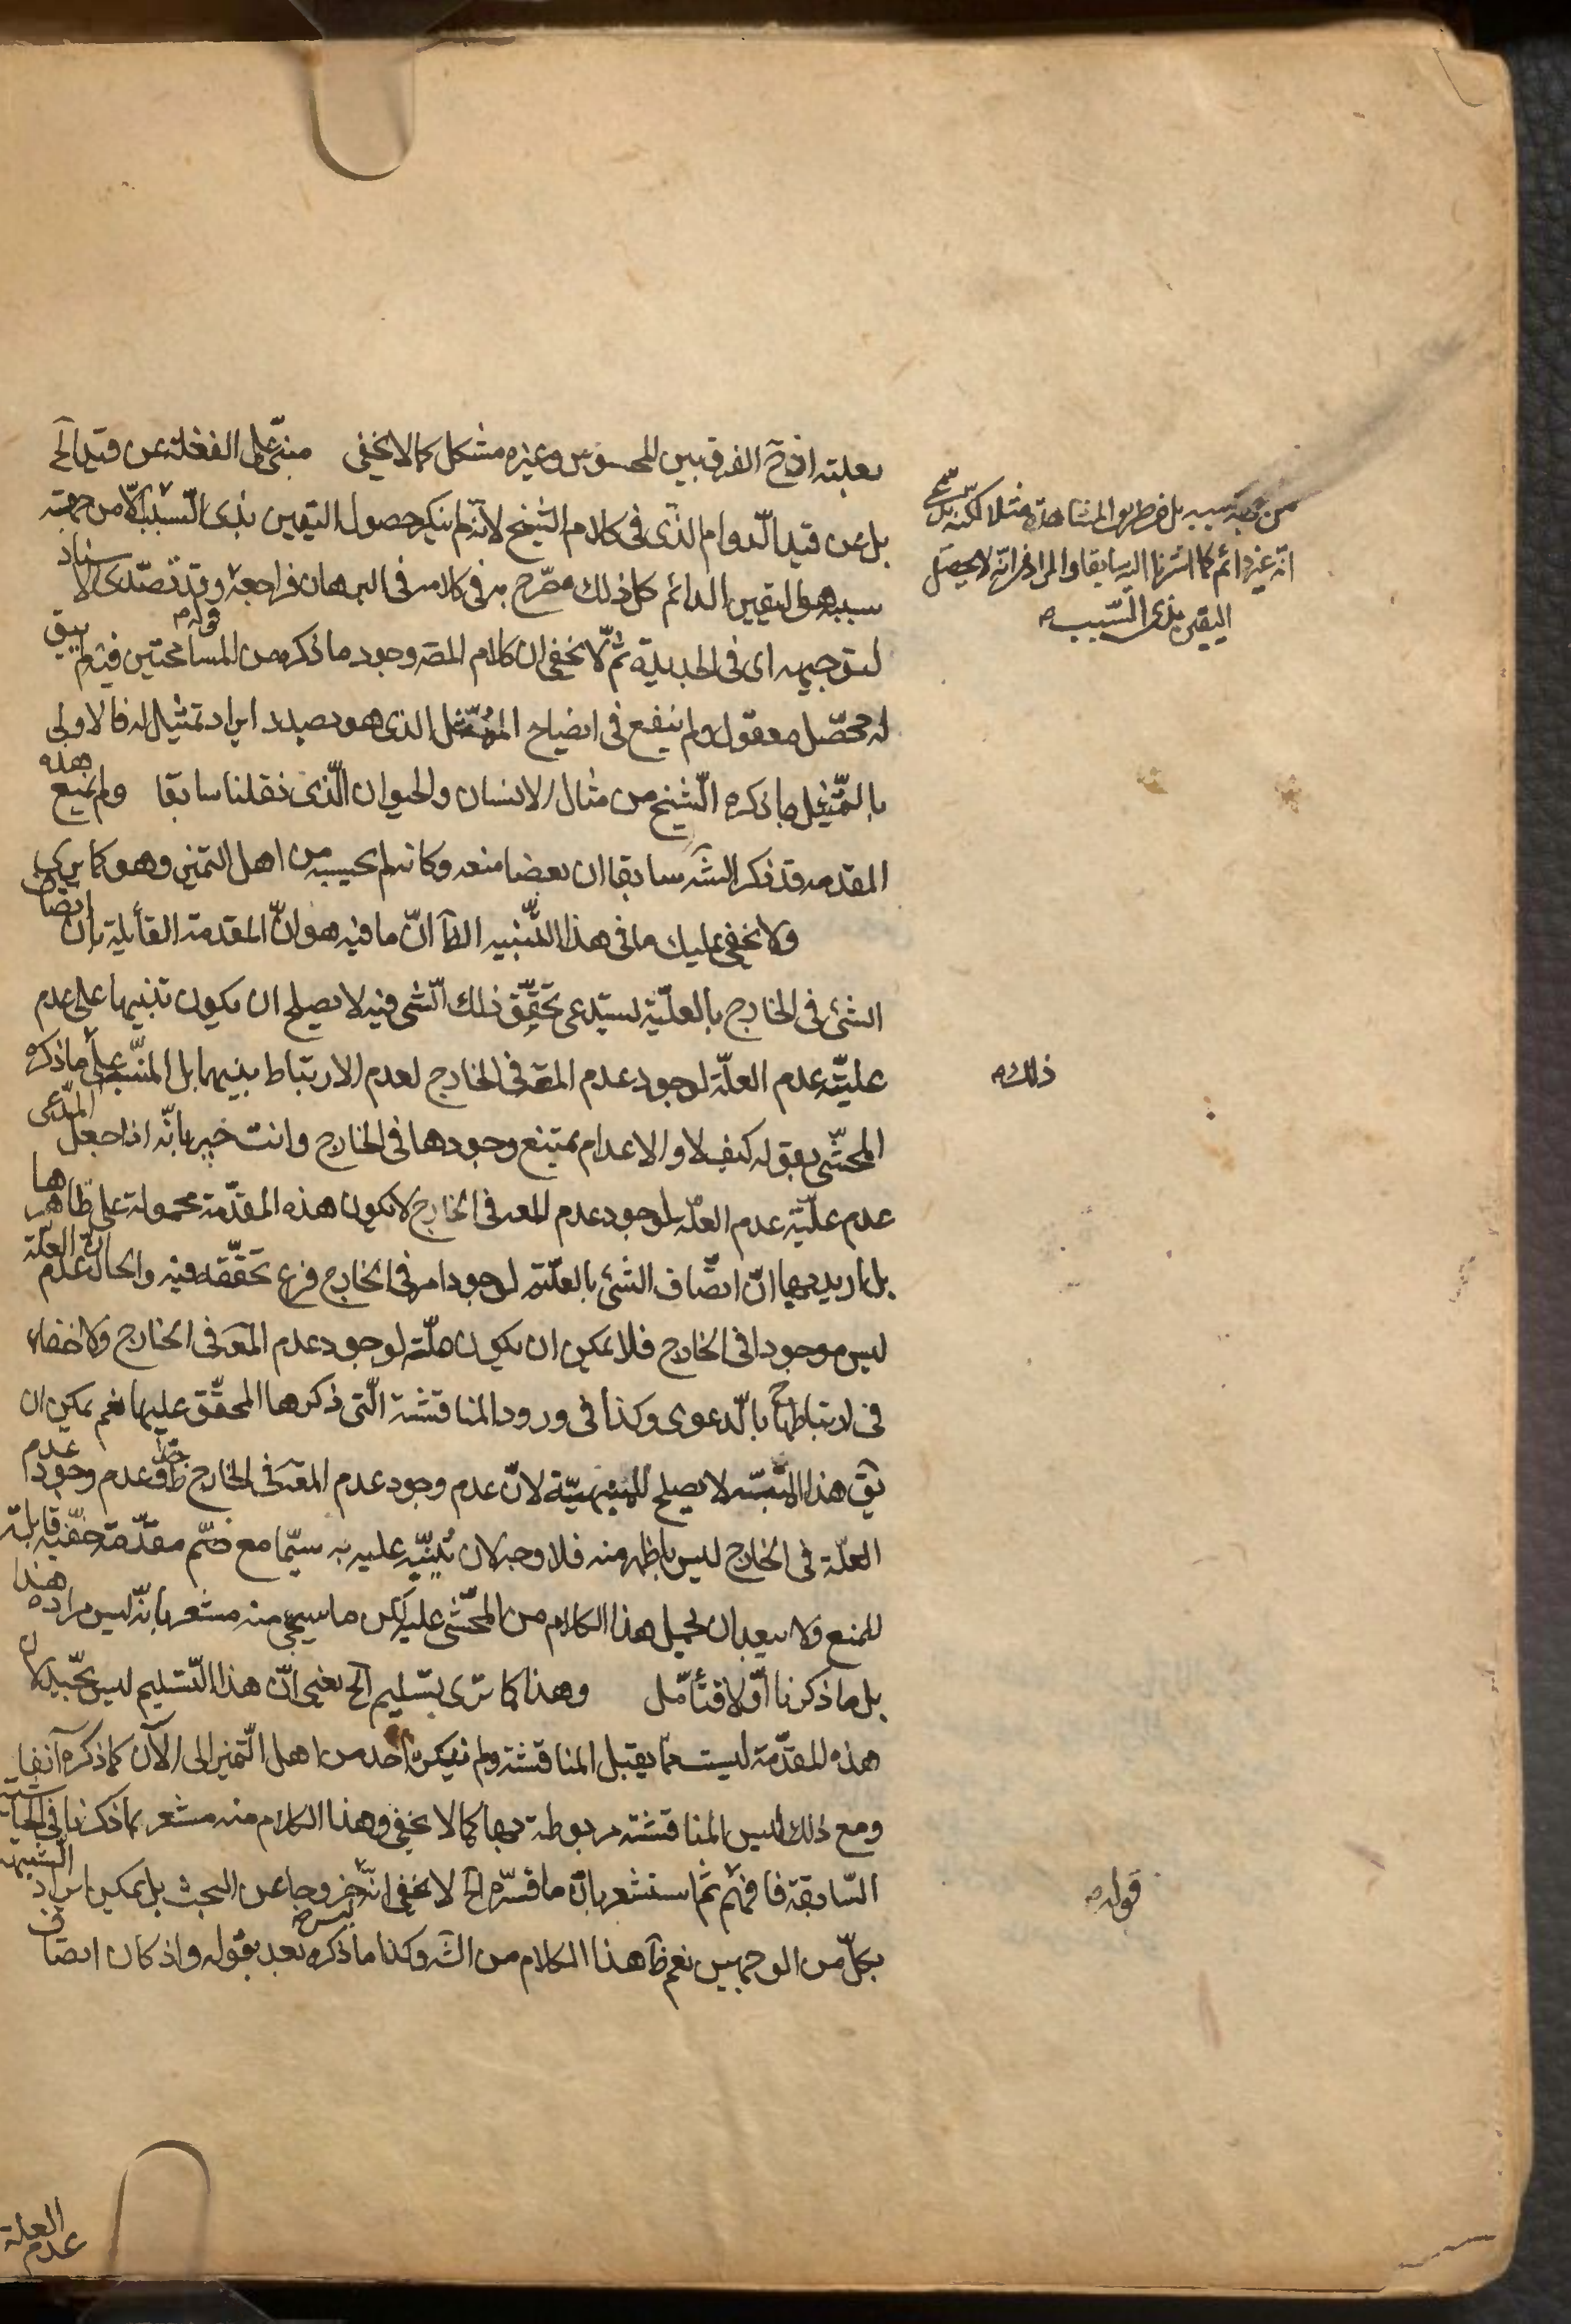 بعلته اذ ح الفرق بين المحسوس وغيره مشكل كما لا يخفى مبنى على الغفلة عن قيد الخ
بل عن قيد الدوام الذى فى كلام الشيخ لانه لم ينكر حصول اليقين بذى السبب الا من جهة
سببه هو اليقين الدائم كل ذلك مصرح به فى كلامه فى البرهان فراجعه وقد تصدى الاستاذ
لتوجيهه اى فى الجديدة ثم لا يخفى ان كلام المصر وجود ما ذكره من المسامحتين فيه لم يبق
له محصل معقول ولم ينفع فى ايضاح الممثل الذى هو بصدد ايراد تمثيل له فالاولى
بالتمثيل ما ذكره الشيخ من مثال الانسان والحيوان الذى نقلنا سابقا قوله ولم يمنع هذه
المقدمه قد ذكر الشه سابقا ان بعضا منعه وكانه لم يحسبه من اهل التميز وهو كما يرى
ولا يخفى عليك ما فى هذا التنبيه الظا ان ما فيه هو ان المقدمة القائلة بان اتصاف
الشئ فى الخارج بالعلية يستدعى تحقق ذلك الشى فيه لا يصلح ان يكون تنبيها على عدم
علية عدم العلة لوجود عدم المعه فى الخارج لعدم الارتباط بينهما بل المنبه على ذلك ما ذكره
المحشى بقوله كيف لا والاعدام يمتنع وجودها فى الخارج وانت خبير بانه اذا جعل المدعى
عدم علية عدم العلة لوجود عدم المعه فى الخارج لا يكون هذه المقدمة محمولة على ظاهرها
بل اريد بها ان اتصاف الشئ بالعلية لوجود امر فى الخارج فرع تحققه فيه والحال ان عدم العلة
ليس موجودا فى الخارج فلا يمكن ان يكون علة لوجود عدم المعه فى الخارج ولا خفاء
فى ارتباطها ح بالدعوى وكذا فى ورود المناقشة التى ذكرها المحقق عليها نعم يمكن ان
يق هذا المنبه لا يصلح للمنبهية لان عدم وجود عدم المعه فى الخارج عدم وجود عدم
العلة فى الخارج ليس باظهر منه فلا وجه لان ينبه عليه به سيما مع ضم مقدمة خفية قابلة
للمنع ولا يبعد ان يحمل هذا الكلام من المحشى عليه لكن ما سيجى منه مشعر بانه ليس مراده هذا
بل ما ذكرنا اولا فتأمل وهذا كما ترى تسليم الخ يعنى ان هذا التسليم ليس بجيد لان
هذه المقدمة ليست مما يقبل المناقشة ولم ينكره احد من اهل التميز الى الآن كما ذكره آنفا
ومع ذلك ليس المناقشة مربوطة بها كما لا يخفى وهذا الكلام منه مشعر بما ذكرنا فى الحاشية
السابقة فافهم قوله ثم استشعر بان ما فسره الخ لا يخفى انه ليس خروجا عن البحث بل يمكن ايراد الشبهة
بكل من الوجهين نعم ظا هذا الكلام من الشه وكذا ما ذكره بعد بقوله واذ كان اتصاف
من جهة سببه بل من طريق المشاهدة مثلا لكنه
انه غير دائم كما اشرنا اليه سابقا والمراد انه لا يحصل
اليقين بذى السبب
ذلك
قوله
العلة
عدم